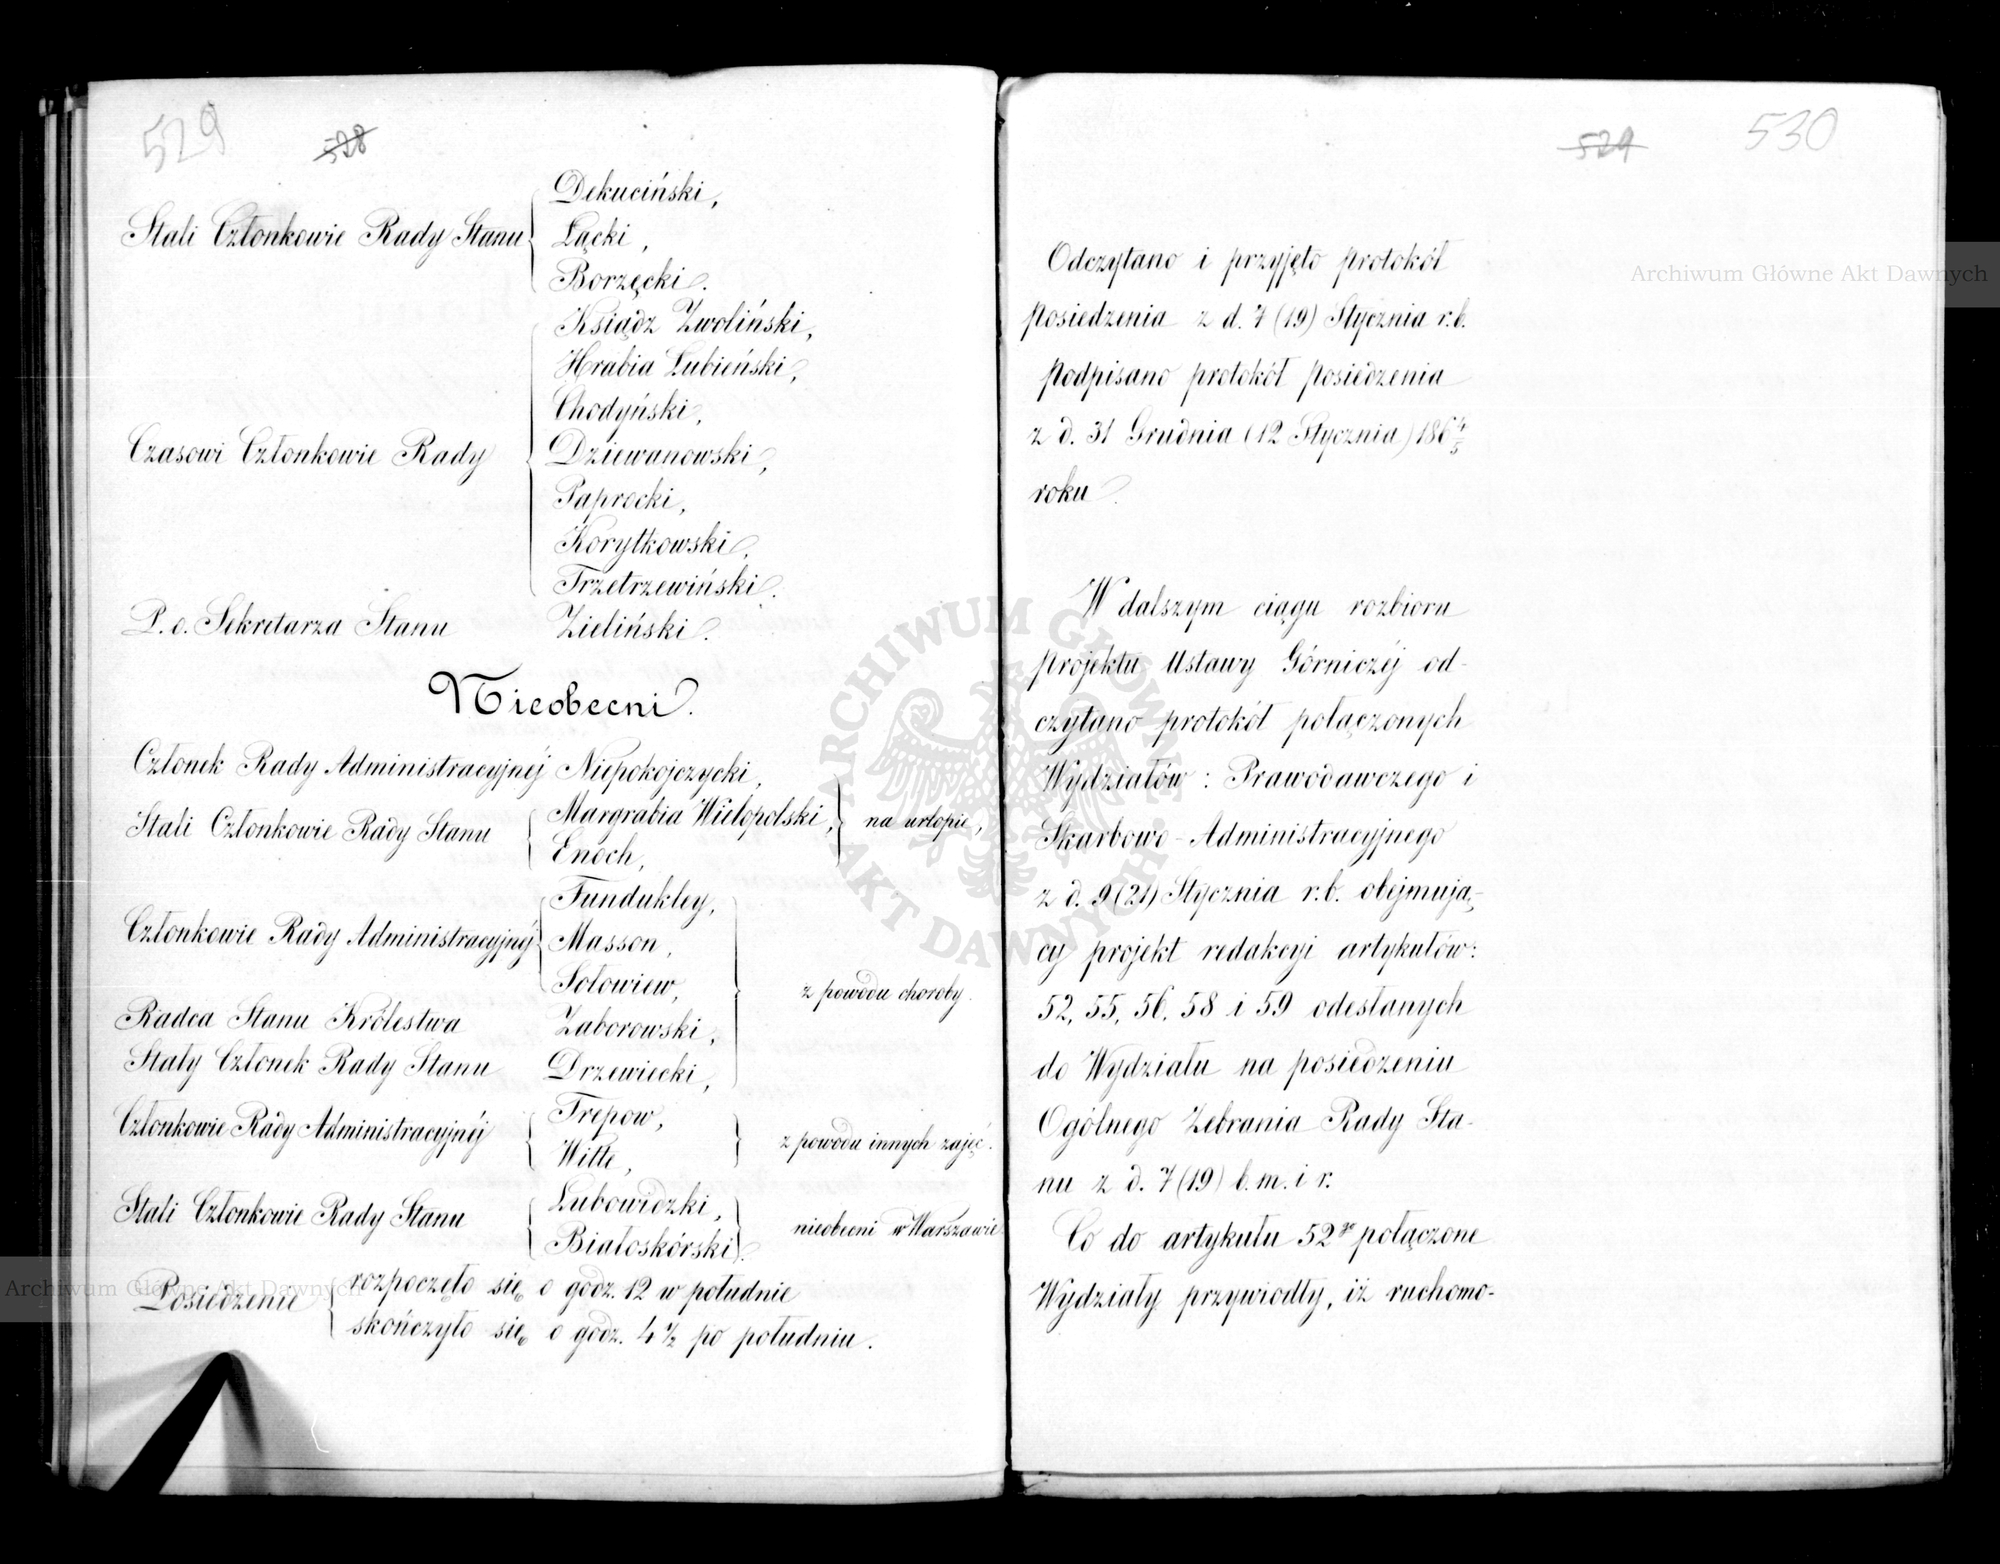 529
528
Dekuciński,
Stali Członkowie Rady Stanu Łącki,
Borzęcki.
Ksiądz Zwoliński,
Hrabia Łubieński,
Chodyński,
Czasowi Członkowie Rady Dziewanowski,
Paprocki,
Korytkowski,
Trzetrzewiński.
P. o. Sekretarza Stanu Zieliński.
Nieobecni.
Członek Rady Administracyjnéj Niepokojczycki,
Stali Członkowie Rady Stanu Margrabia Wielopolski, na urlopie,
Enoch,
Fundukley,
Członkowie Rady Administracyjnéj Masson,
Sołowiew, z powodu choroby.
Radca Stanu Królestwa Zaborowski,
Stały Członek Rady Stanu Drzewiecki,
Członkowie Rady Administracyjnéj Trepow, z powodu innych zajęć.
Witte,
Stali Członkowie Rady Stanu Lubowidzki, nieobecni w Warszawie
Białoskórski.
Posiedzenie rozpoczęło się o godz. 12 w południe
skończyło się o godz. 4 1/2 po południu.
529
530
Odczytano i przyjęto protokół
posiedzenia z d. 7 (19) Stycznia r.b.
podpisano protokół posiedzenia
z d. 31 Grudnia (12 Stycznia) 186 4/5
roku.
W dalszym ciągu rozbioru
projektu Ustawy Górniczéj od-
czytano protokół połączonych
Wydziałów: Prawodawczego i
Skarbowo-Administracyjnego
z d. 9 (21) Stycznia r.b. obejmują-
cy projekt redakcyi artykułów:
52, 55, 56, 58 i 59 odesłanych
do Wydziału na posiedzeniu
Ogólnego Zebrania Rady Sta-
nu z d. 7 (19) b.m. i r.
Co do artykułu 52go połączone
Wydziały przywiodły, iż ruchomo-
Archiwum Główne Akt Dawnych
Archiwum Główne Akt Dawnych
ARCHIWUM GŁÓWNE AKT DAWNYCH